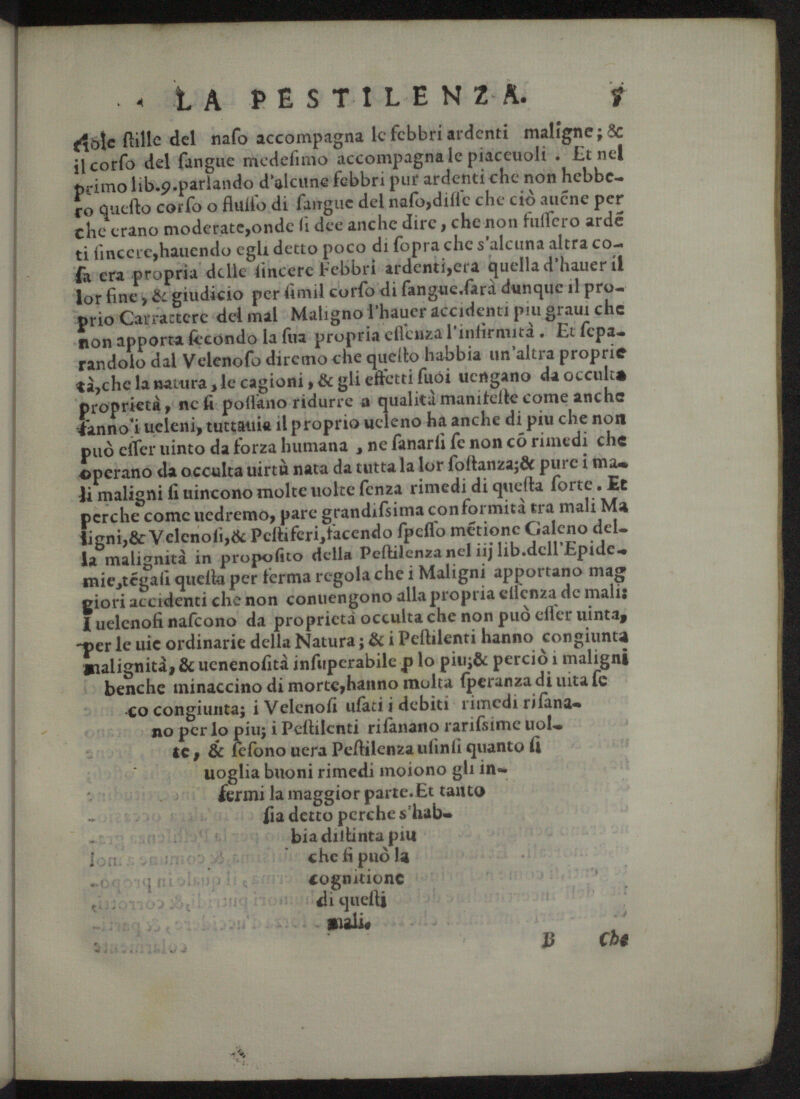 LA PESTILENZA. 5
ciole ſtille del naſo accompagna le febbri ardenti maligne; &
il corſo del ſangue medeſimo accompagna le piaceuoli . Et nel
primo lib.9.parlando d'alcune febbri pur ardenti che non hebbe-
ro queſto corſo o fluſſo di ſangue del naſo,diſſe che ciò auēne per
che erano moderate,onde ſi dee anche dire, che non fuſſero ardē
ti ſincere,hauendo egli detto poco di ſopra che s'alcuna altra co-
ſa era propria delle ſincere Febbri ardenti,era quella d'hauer il
lor fine, & giudicio per ſimil corſo di ſangue.ſarà dunque il pro-
prio Carrattere del mal Maligno l'hauer accidenti piu graui che
non apporta ſecondo la ſua propria eſſenza l'infirmità . Et ſepa-
randolo dal Velenoſo diremo che queſto habbia un'altra proprie
tà,che la natura, le cagioni, & gli effetti ſuoi uengano da occulta
proprietà, ne ſi poſſano ridurre a qualità manifeſte come anche
fanno i ueleni, tuttauia il proprio ueleno ha anche di piu che non
può eſſer uinto da forza humana , ne ſanarſi ſe non cō rimedi che
operano da occulta uirtù nata da tutta la lor ſoſtanza;& pure i ma-
li maligni ſi uincono molte uolte ſenza rimedi di queſta ſorte. Et
perche come uedremo, pare grandiſsima conformità tra mali Ma
ligni,& Velenoſi,& Peſtiferi,facendo ſpeſſo mētione Galeno del-
la malignità in propoſito della Peſtilenza nel iij lib.dell'Epide-
mie,tēgaſi queſta per ferma regola che i Maligni apportano mag
giori accidenti che non conuengono alla propria eſſenza de mali:
I uelenoſi naſcono da proprietà occulta che non può eſſer uinta,
per le uie ordinarie della Natura; & i Peſtilenti hanno congiunta
malignità, & uenenoſità inſuperabile ꝑ lo piu;& perciò i maligni
benche minaccino di morte,hanno molta ſperanza di uita ſe
co congiunta; i Velenoſi uſati i debiti rimedi riſana-
no per lo piu; i Peſtilenti riſanano rariſsime uol-
te, & ſeſono uera Peſtilenza uſinſi quanto ſi
uoglia buoni rimedi moiono gli in-
fermi la maggior parte.Et tanto
ſia detto perche s'hab-
bia diſtinta piu
che ſi può la
cognitione
di queſti
mali.
B Che